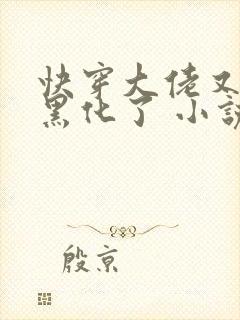 快穿大佬又
黑化了 小説
殷京